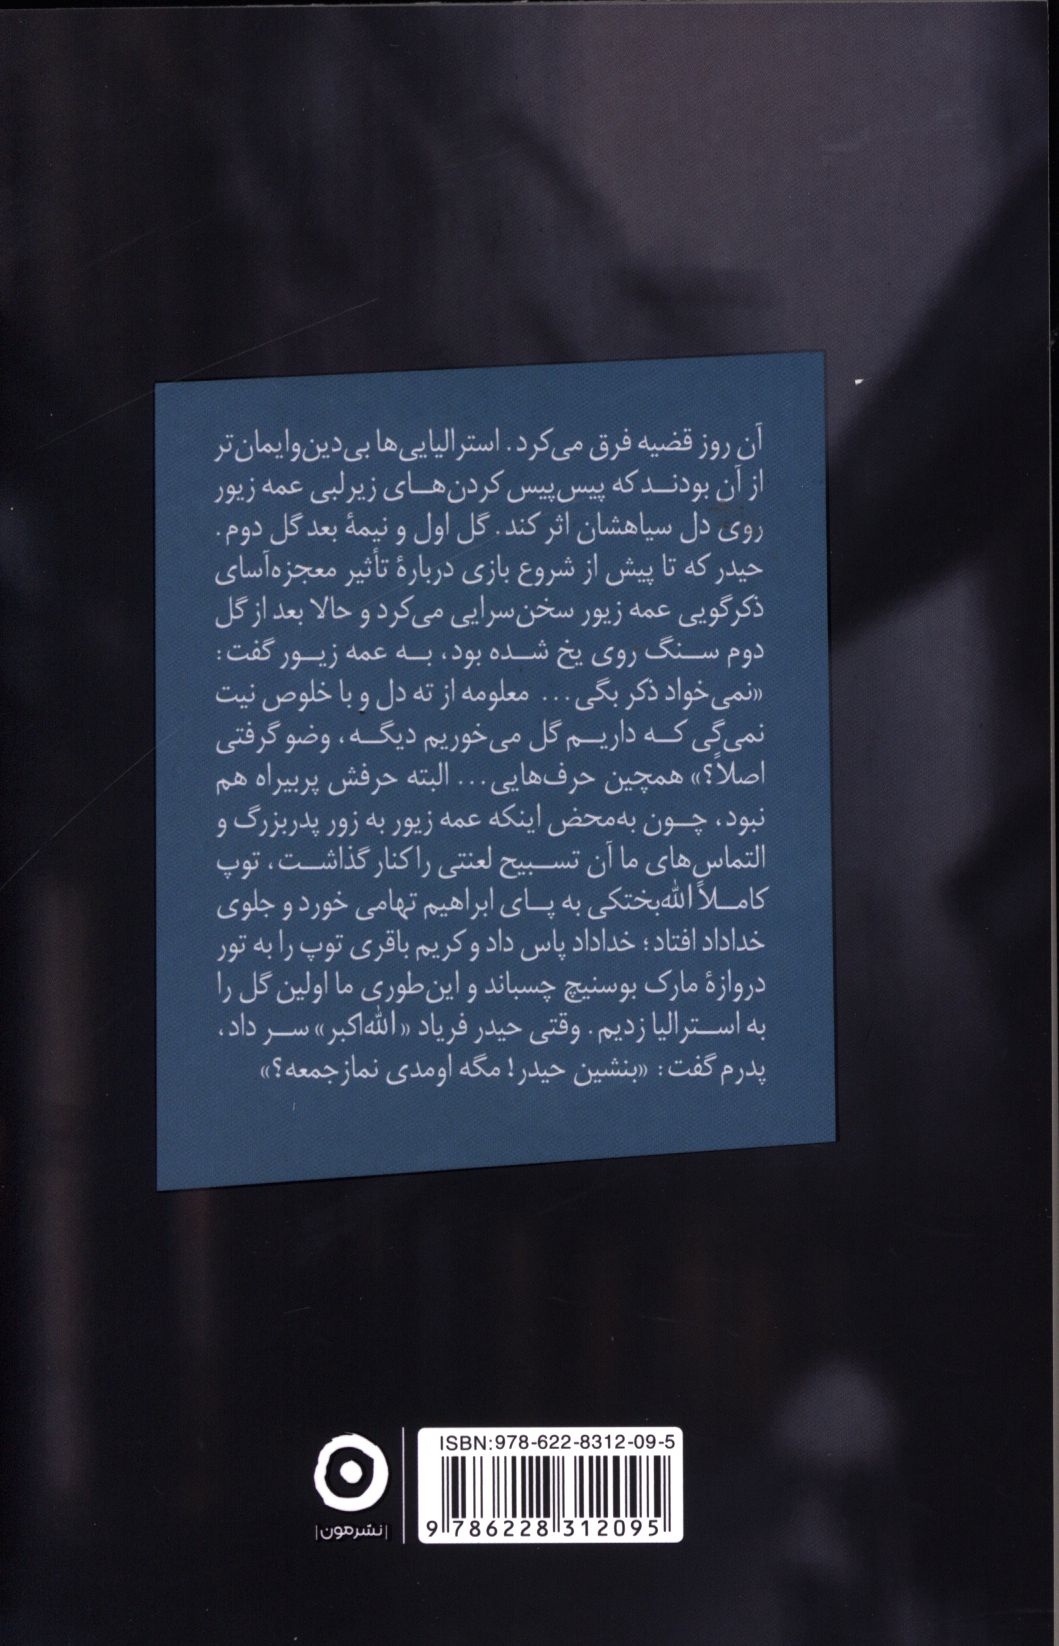 آن روز قضیه فرق می‌کرد. استرالیایی‌ها بی‌دین‌وایمان‌تر
از آن بودند که پیس‌پیس کردن‌های زیرلبی عمه زیور
روی دل سیاهشان اثر کند. گل اول و نیمهٔ بعد گل دوم.
حیدر که تا پیش از شروع بازی دربارهٔ تأثیر معجزه‌آسای
ذکرگویی عمه زیور سخن‌سرایی می‌کرد و حالا بعد از گل
دوم سنگ روی یخ شده بود، به عمه زیور گفت:
«نمی‌خواد ذکر بگی... معلومه از ته دل و با خلوص نیت
نمی‌گی که داریم گل می‌خوریم دیگه، وضو گرفتی
اصلاً؟» همچین حرف‌هایی... البته حرفش پربیراه هم
نبود، چون به‌محض اینکه عمه زیور به زور پدربزرگ و
التماس‌های ما آن تسبیح لعنتی را کنار گذاشت، توپ
کاملاً الله‌بختکی به پای ابراهیم تهامی خورد و جلوی
خداداد افتاد؛ خداداد پاس داد و کریم باقری توپ را به تور
دروازهٔ مارک بوسنیچ چسباند و این‌طوری ما اولین گل را
به استرالیا زدیم. وقتی حیدر فریاد «الله‌اکبر» سر داد،
پدرم گفت: «بنشین حیدر! مگه اومدی نمازجمعه؟»
ISBN:978-622-8312-09-5
9 786228 312095
|نشرمون|